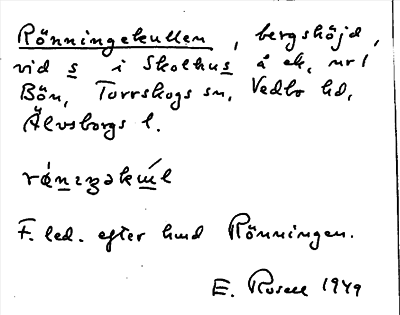 Rönningekullen, bergshöjd,
vid s i Skolhus å ek. nr 1
Bön, Torrskogs sn, Vedbo hd,
Älvsborgs l.
F. led. efter hmd Rönningen.
E. Rosell 1949